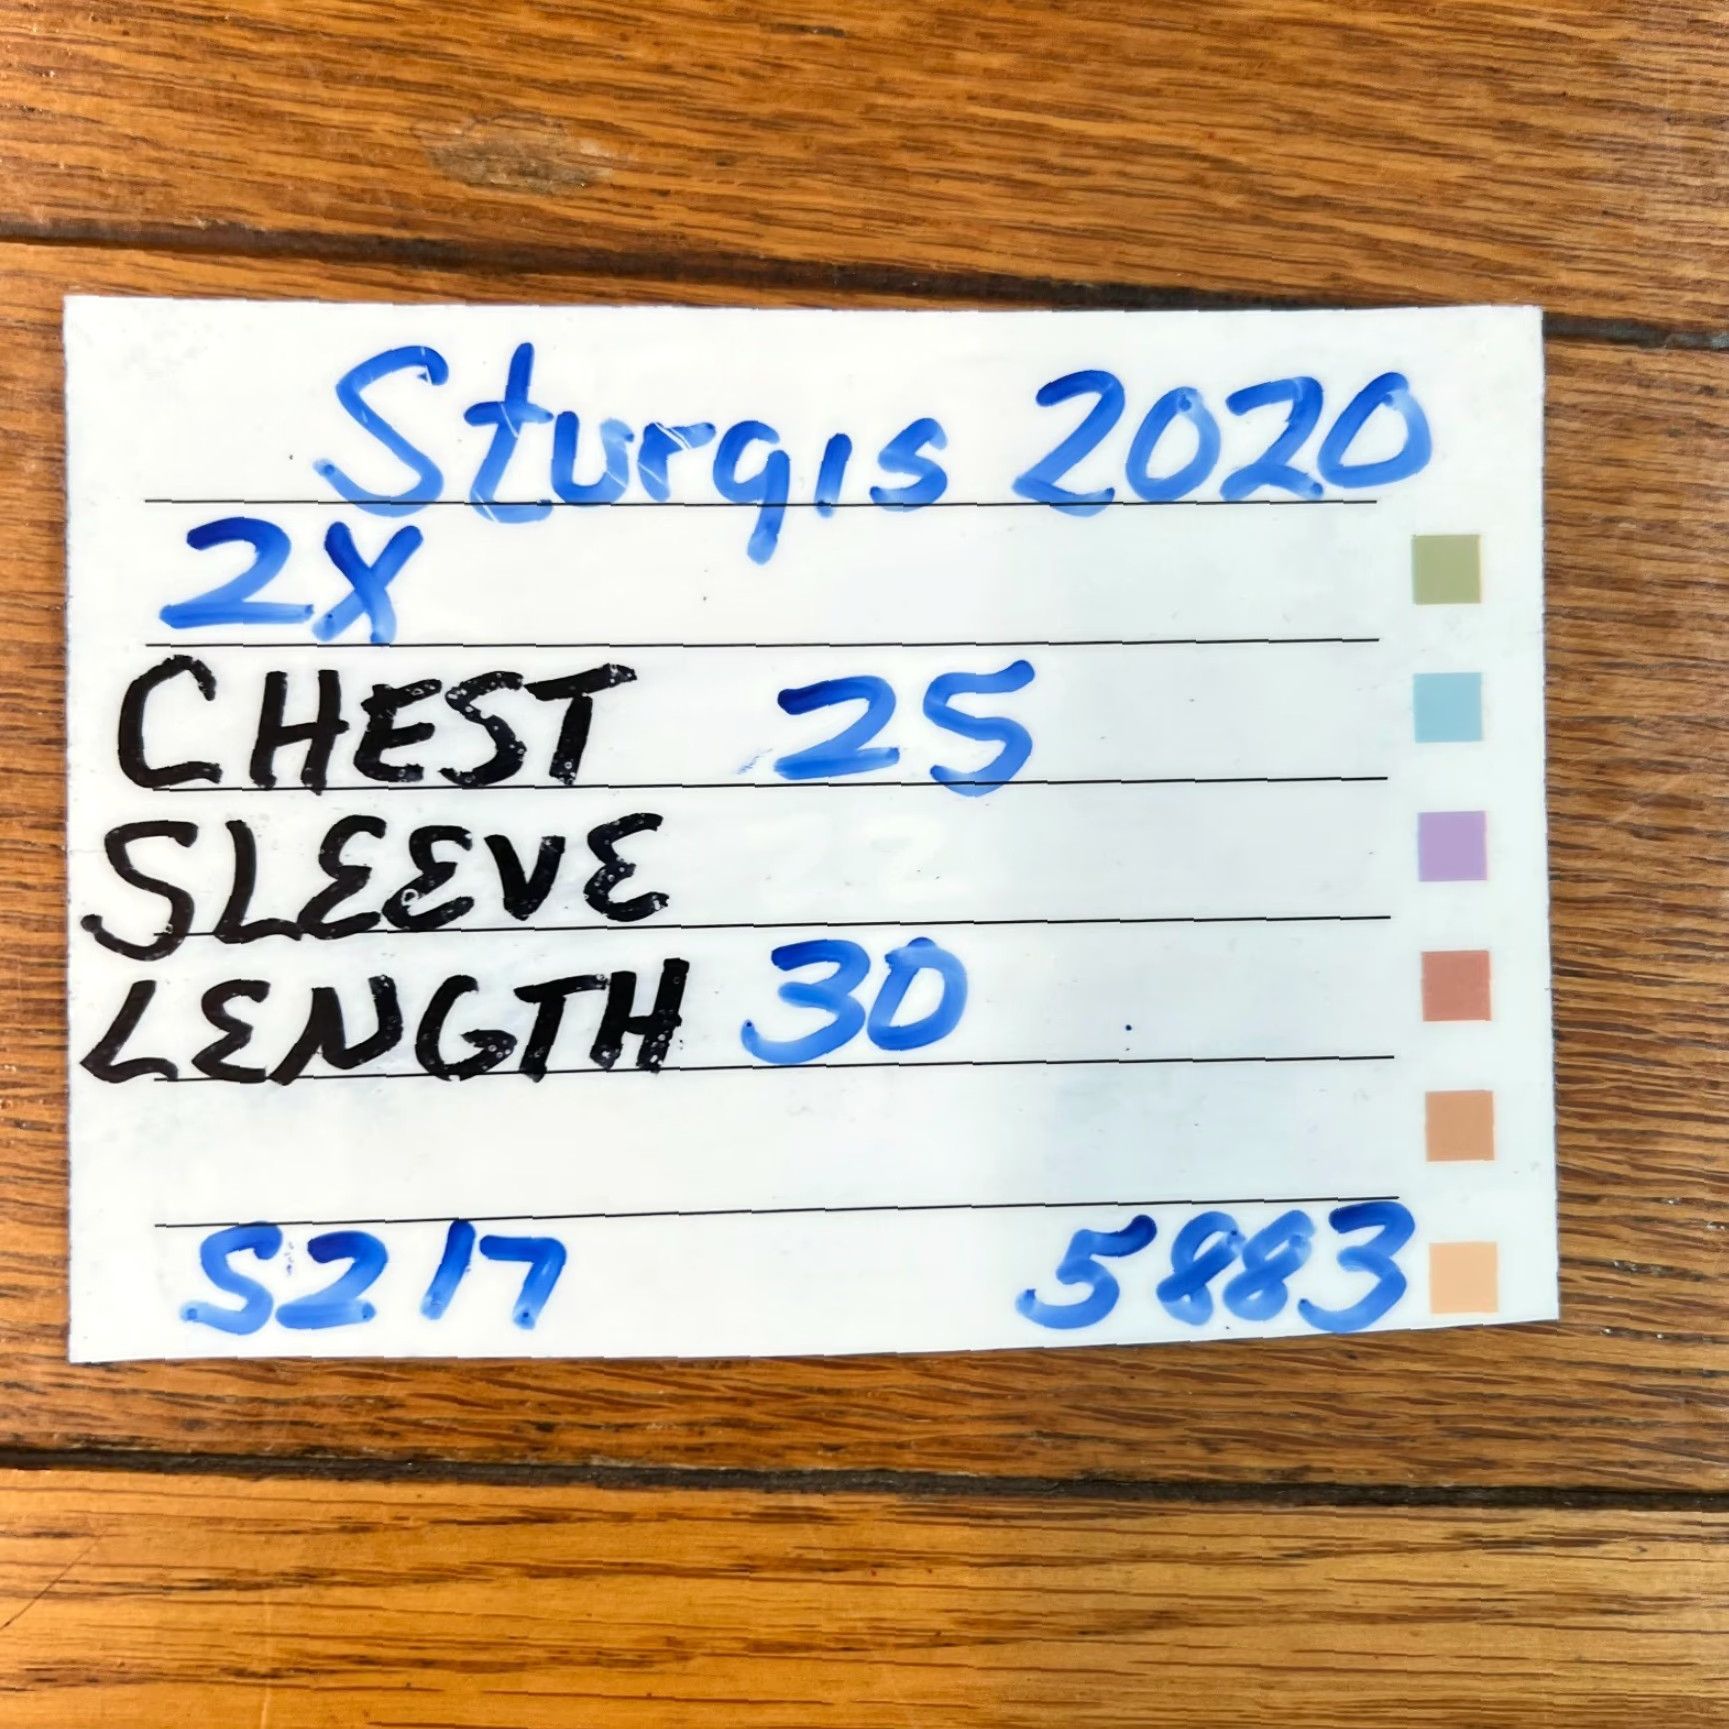 Sturgis 2020
2X
CHEST 25
SLEEVE
LENGTH 30
S217 5883